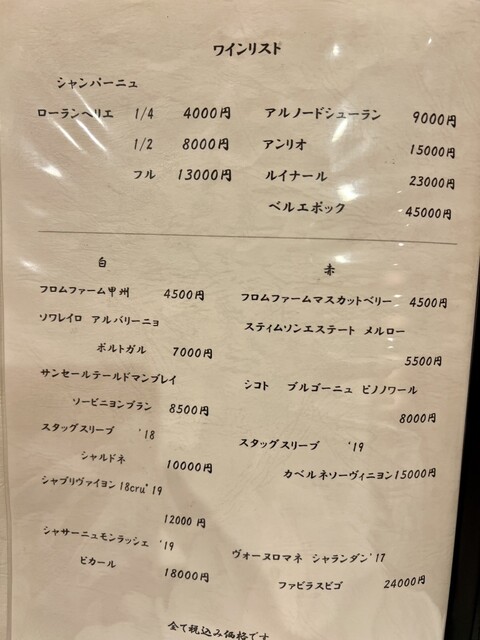 ワインリスト
シャンパーニュ
ローランペリエ 1/4 4000円
1/2 8000円
フル 13000円
アルノードシューラン 9000円
アンリオ 15000円
ルイナール 23000円
ベルエポック 45000円
白
フロムファーム甲州 4500円
ソワレイロ アルバリーニョ
ポルトガル 7000円
サンセールテールドマンブレイ
ソービニョンブラン 8500円
スタッグスリープ '18
シャルドネ 10000円
シャブリヴァイヨン18cru '19
12000円
シャサーニュモンラッシェ '19
ピカール 18000円
赤
フロムファームマスカットベリー 4500円
スティムソンエステート メルロー
5500円
シコト ブルゴーニュ ピノノワール
8000円
スタッグスリープ '19
カベルネソーヴィニヨン15000円
ヴォーヌロマネ シャランダン'17
ファビラスビゴ 24000円
全て税込み価格です